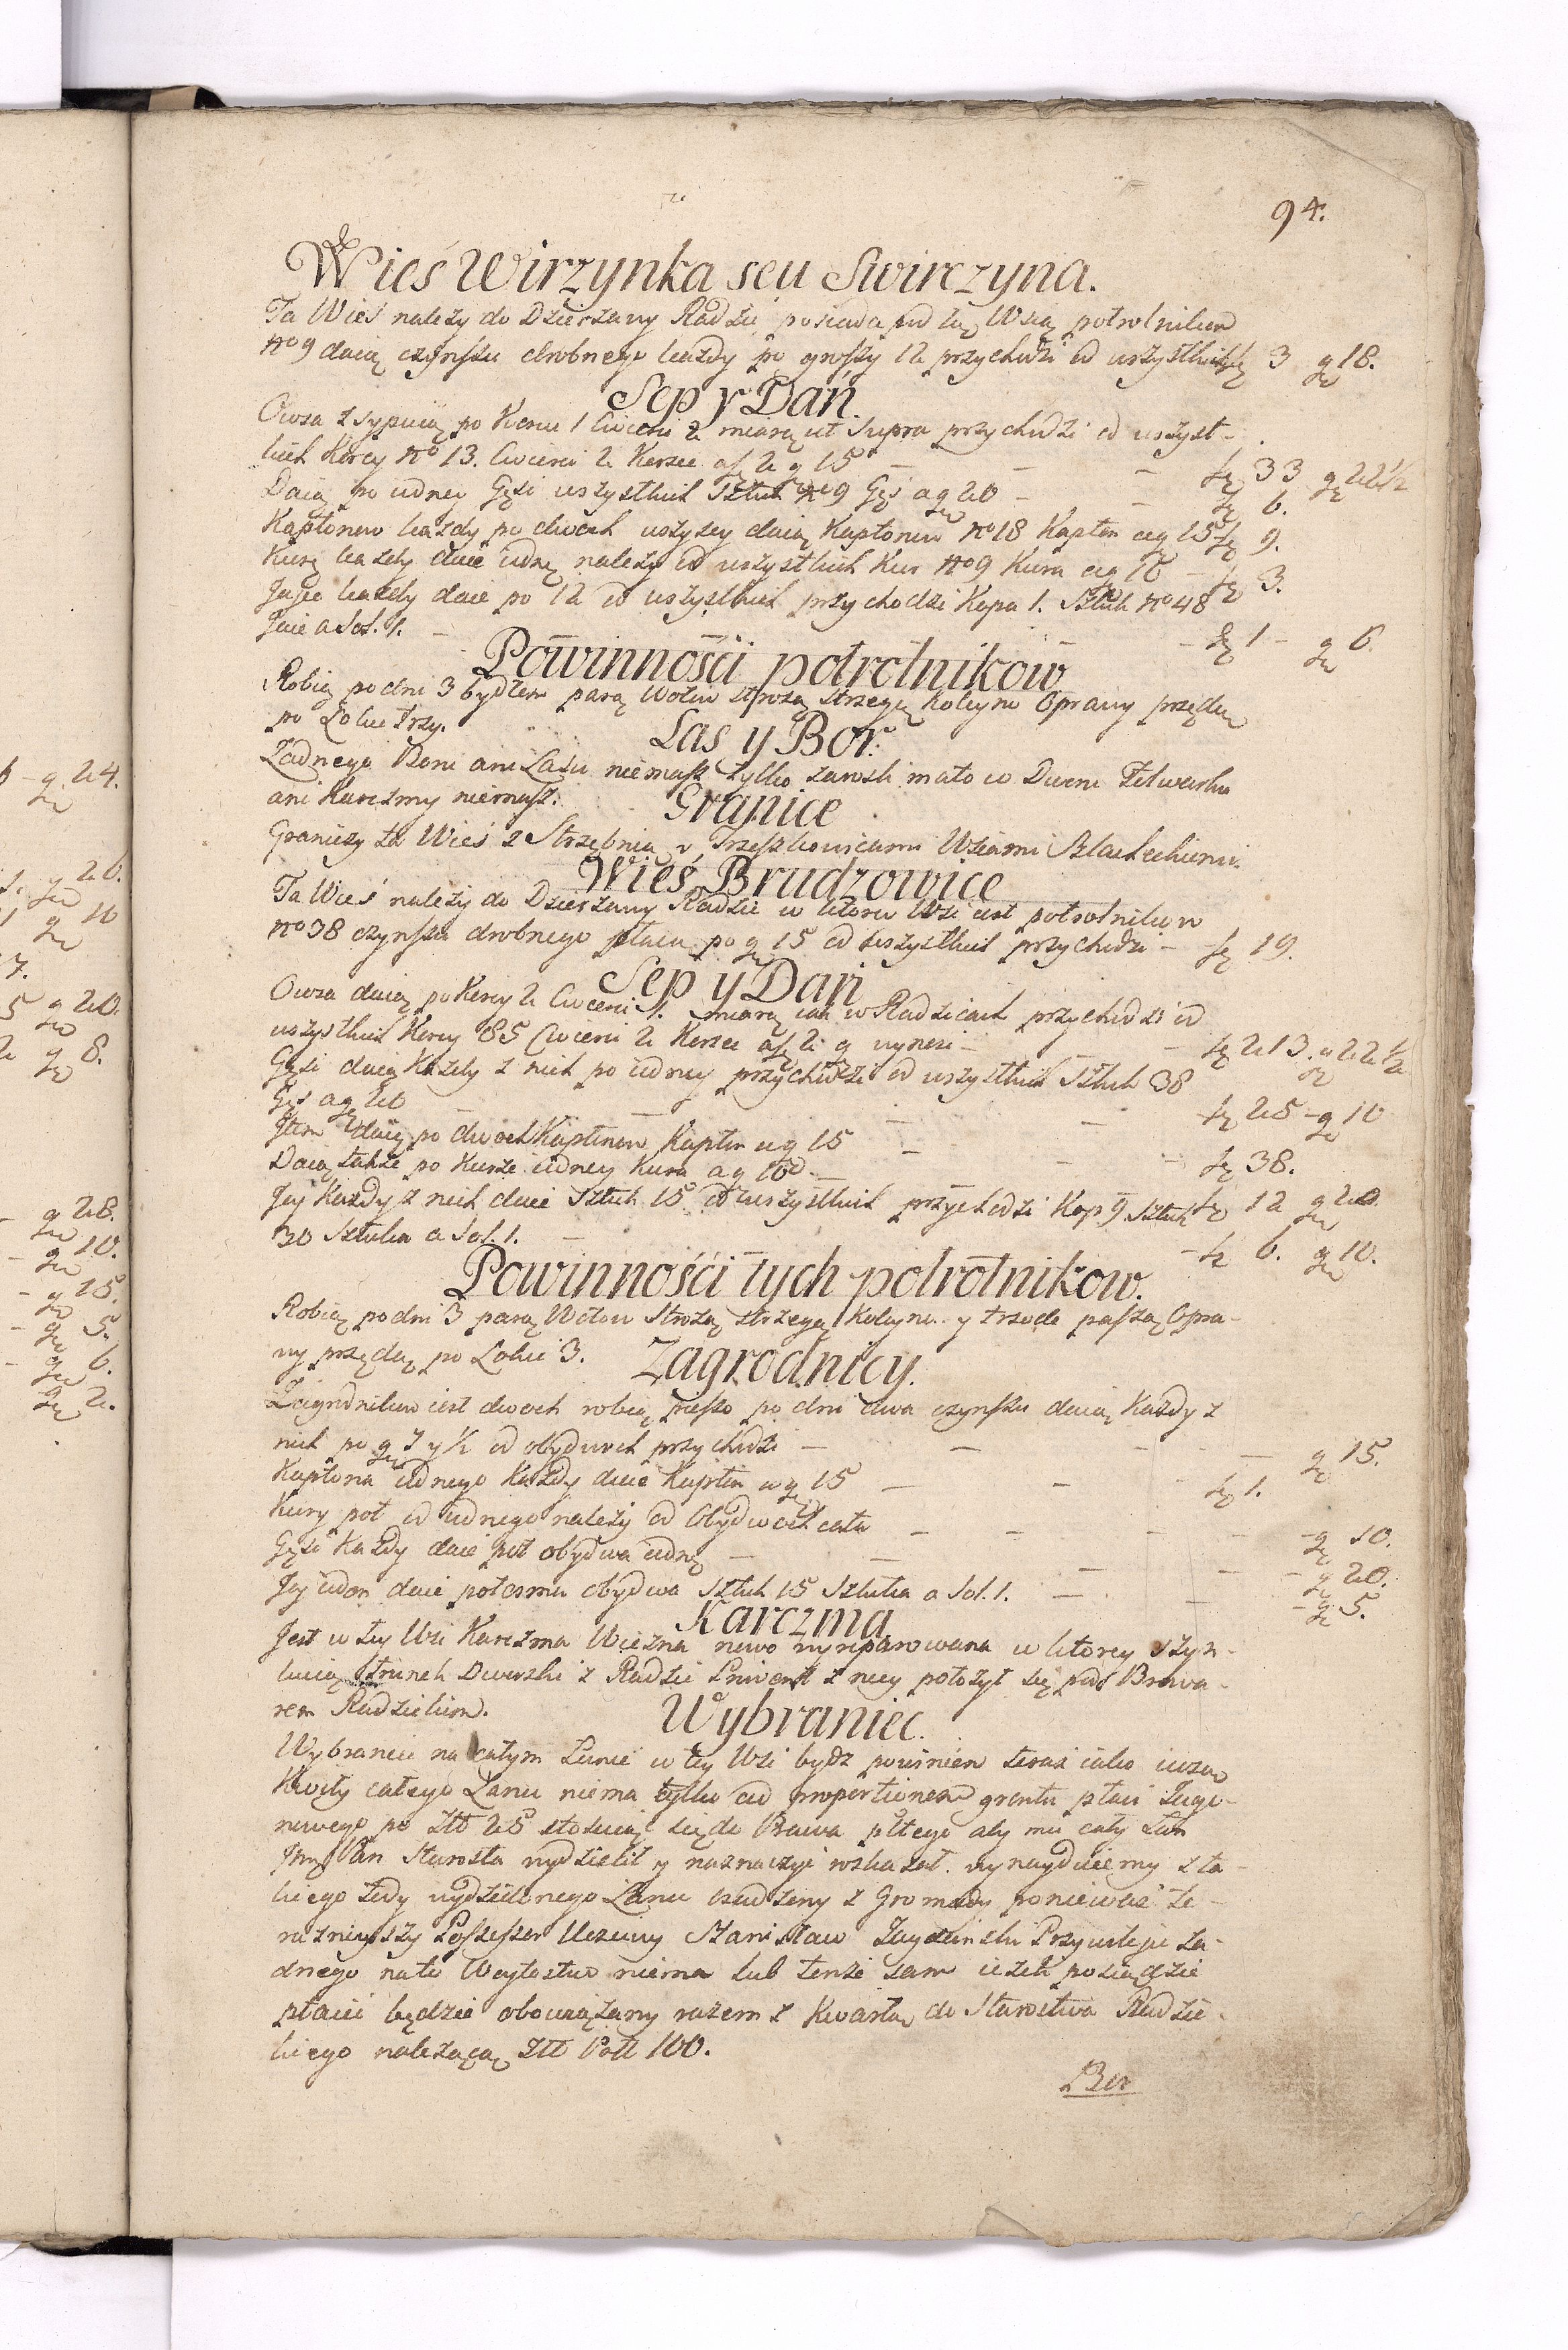 94.
Wieś Wirzynka seu Swirczyna.
Ta Wieś należy do Dzierzawy Radzic posiada pod tąż Wsią potrolnikow
No 9 daią czynszu drobnego każdy po groszy 12 przychodzi od wszystkich fl 3 gr 18.
Sep y Dań.
Owsa zsypuią po Korcu 1 Cwierci 2 miarą ut Supra przychodzi od wszyst-
kich Korcy No 13. Cwierci 2 Korzec a fl 2 g 15 — fl 33 gr 22 1/2
Daią po iedney Gęsi wszystkich Sztuk No 9 Gęś a gr 20 — fl 6.
Kapłonow każdy po dwoch wszyscy daią Kapłonow No 18 Kapłon a gr 15 fl 9.
Kurę każdy daie iedną należy od wszystkich Kur No 9 Kura a gr 10 — fl 3.
Jajec każdy daie po 12 od wszystkich przychodzi Kopa 1. Sztuk No 48
Jaie a Sol. 1. — fl 1 — gr 6.
Powinnośći potrolnikow
Robią po dni 3 bydłem parą Wołow stróżą strzegą koleyno Oprawy przędą
po Łokci trzy.
Las y Bor.
Zadnego Boru ani Lasu niemasz tylko zarosli mało co Dworu Folwarku
ani Karczmy niemasz.
Granice
Graniczy ta Wieś z Strzębnią y Trzeszkowicami Wsiami Szlacheckiemi.
Wieś Brudzowice
Ta Wieś należy do Dzierzawy Radzic w ktorey Wsi iest potrolnikow
No 38 czynszu drobnego płacą po g 15 od wszystkich przychodzi — fl 19.
Sep y Dań
Owsa daią po Korcy 2 Cwierci 1. miarą iak w Radzicach przychodzi od
wszystkich Korcy 85 Cwierci 2 Korzec a fl 2 g wynosi — fl 213. g 22 1/2
Gęsi daią Każdy z nich po iedney przychodzi od wszystkich Sztuk 38
Gęś a gr 20 — fl 25 — g 10
Item daią po dwoch Kapłonow Kapłon a g 15 — fl 38.
Daią także po Kurze iedney Kura a g 10 —
Jay Każdy z nich daie Sztuk 15 od wszystkich przychodzi Kop 9 Sztuk fl 12 gr 20
30 Sztuka a Sol. 1. — fl 6. gr 10.
Powinnośći tych potrolnikow.
Robią po dni 3 parą Wołow Stróżą strzegą Koleyno y trzode paszą Opra-
wy przędą po Łokci 3.
Zagrodnicy.
Zagrodnikow iest dwoch robią pieszo po dni dwa czynszu daią Każdy z
nich po gr 7 y 1/2 od obydwoch przychodzi — gr 15.
Kapłona iednego Każdy daie Kapłon a gr 15 — fl 1.
Kury poł od iednego należy od Obydwoch cała — gr 10.
Gęsi Każdy daie poł obydwa iedną — gr 20.
Jay ieden daie połosma obydwa Sztuk 15 Sztuka a Sol. 1. — gr 5.
Karczma
Jest w tey Wsi Karczma Wiezna nowo wyreparowana w ktorey szyn-
kuią Trunek Dworski z Radzic Prowent z niey położył się pod Browa-
rem Radzickim.
Wybraniec.
Wybraniec na całym Łanie w tey Wsi bydz powinien teraz iako iuz
Kwity całego Łanu niema tylko ad proportionem gruntu płaci Łano-
wego po Złł 25 stosuiąc się do Prawa płłego aby mu cały Łan
Jmć Pan Starosta wydzielił y naznaczyć wskazał. wynaydziemy z ta-
kiego tedy wydzielonego Łanu osadzony z Gromady poniewaz te-
raznieyszy Possessor Uczciwy Stanisław Przywileju ża-
dnego na to Woytostwo niema lub tenże sam ieżeli posiądzie
płacić będzie obowiązany razem z Kwartą do Starostwa Radzic-
kiego należącą Złł Poll 100.
Bor
6 — g 24.
g 20.
1 g 10
7.
5 g 20.
2 g 8.
— g 28.
— g 10.
— g 15.
— g 5.
— g 6.
g 2.